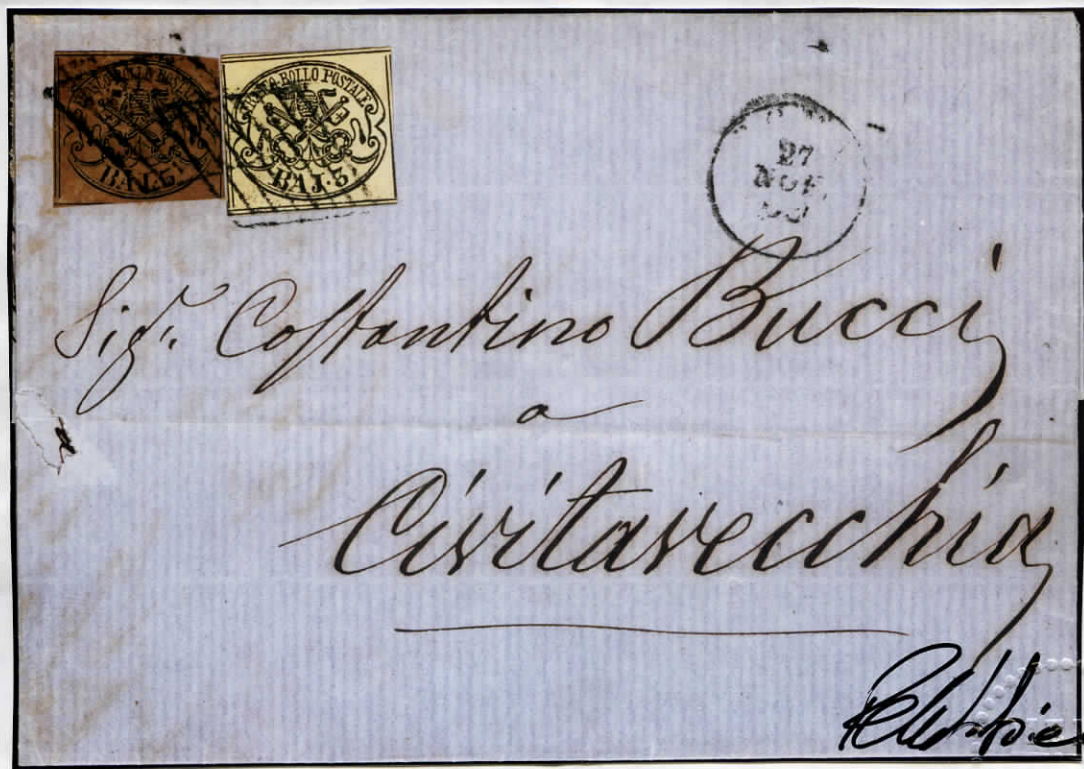 FRANCO BOLLO POSTALE
BAJ. 5
FRANCO BOLLO POSTALE
BAJ. 5
27
NOV
Sigr. Costantino Bucci
a
Civitavecchia